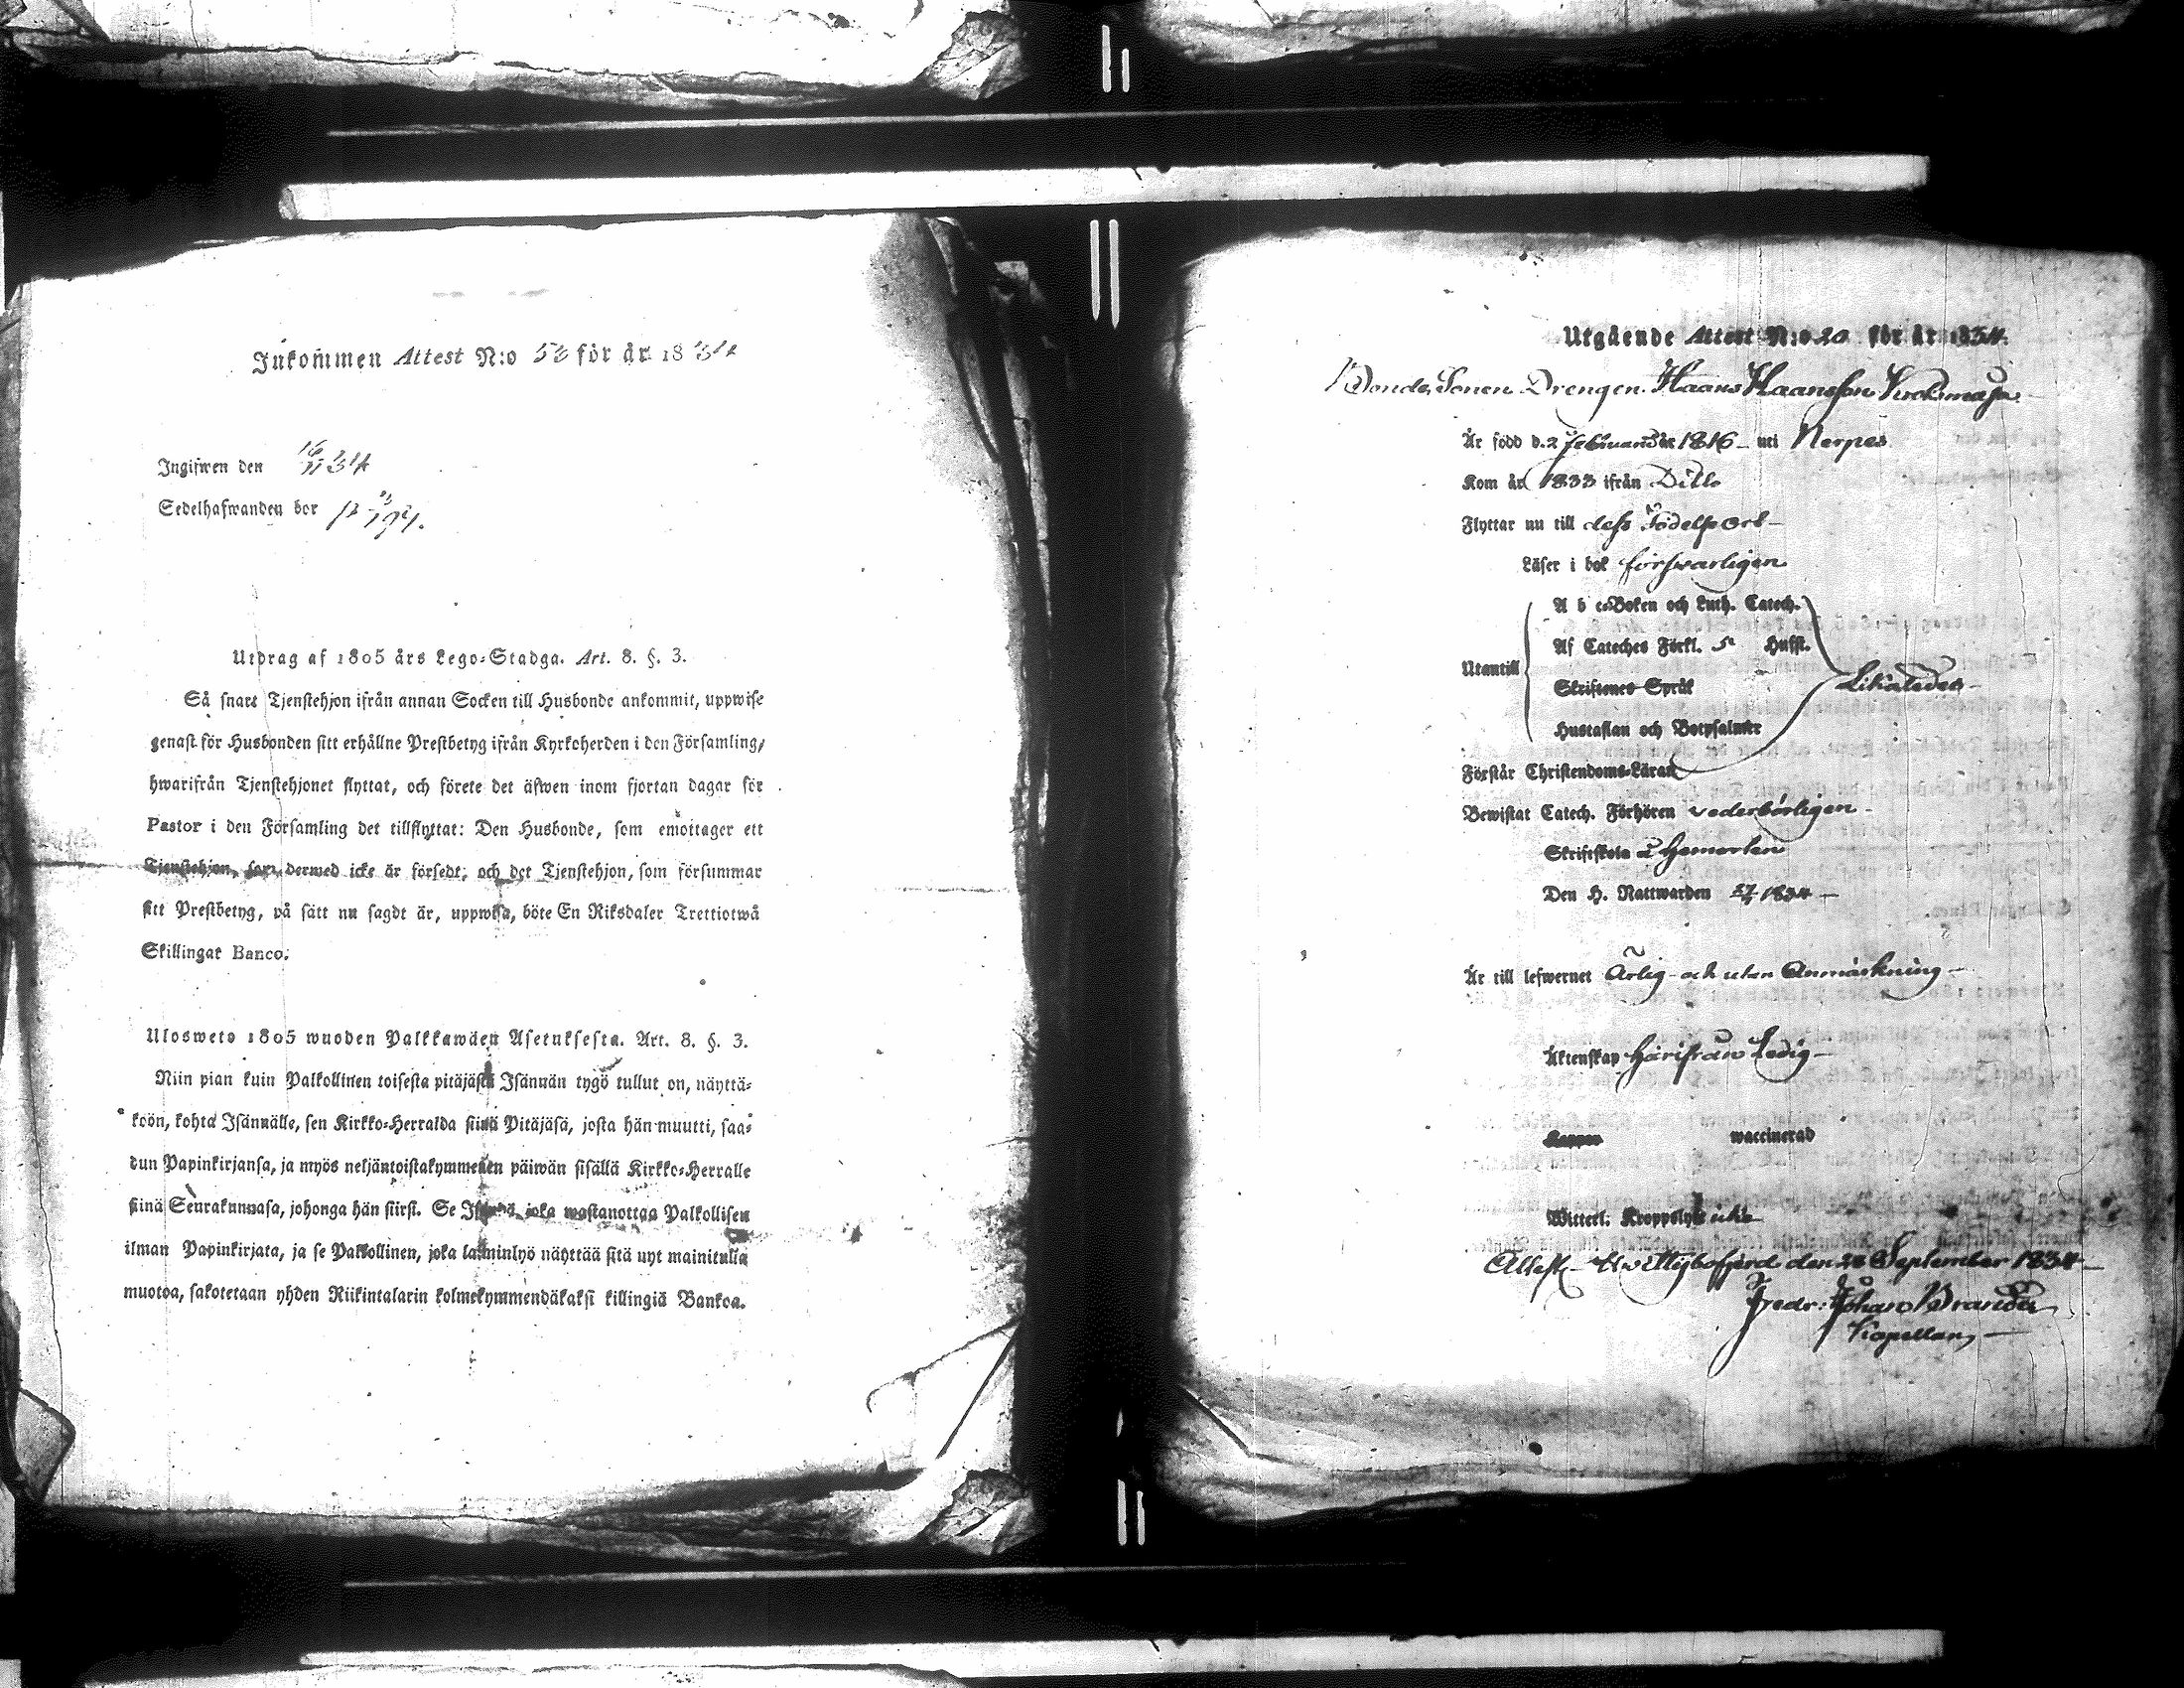 Inkommen Attest N:o 53 för år 1834
Ingifwen den 16/11 34
Sedelhafwanden bor
Utdrag af 1805 års Lego-Stadga. Art. 8. §. 3.
Så snart Tjenstehjon ifrån annan Socken till Husbonde ankommit, uppwise
genast för Husbonden sitt erhållne Prestbetyg ifrån Kyrkoherden i den Församling,
hwarifrån Tjenstehjonet flyttat, och förete det äfwen inom fjortan dagar för
Pastor i den Församling det tillflyttat: Den Husbonde, som emottager ett
Tjenstehjon, som dermed icke är försedt; och det Tjenstehjon, som försummar
sitt Prestbetyg, på sätt nu sagdt är, uppwisa, böte En Riksdaler Trettiotwå
Skillingar Banco.
Ulosweto 1805 wuoden Palkkawäen Asetuksesta. Art. 8. §. 3.
Niin pian kuin Palkollinen toisesta pitäjästä Isännän tygö tullut on, näyttä-
köön, kohta Isännälle, sen Kirkko-Herralda siinä Pitäjäsä, josta hän muutti, saa-
dun Papinkirjansa, ja myös neljäntoistakymmenen päiwän sisällä Kirkko-Herralle
siinä Seurakunnasa, johonga hän siirsi. Se Isändä, joka wastanottaa Palkollisen
ilman Papinkirjata, ja se Palkollinen, joka laiminlyö näyttää sitä nyt mainitulla
muotoa, sakotetaan yhden Riikintalarin kolmekymmendäkaksi killingiä Bankoa.
Utgående Attest N:o 20 för år 1834.
Bonde Sonen Drengen Haans Haansson Kroksmasa
Är född d. 2 Februarii år 1816 uti Nerpes
Kom år 1833 ifrån Ditto
Flyttar nu till dess Födelse Ort
Läser i bok försvarligen
A b c-Boken och Luth. Catech.
Af Cateches Förkl. 5 Hufst.
Utantill
Skriftenes Språk
Likaledes
Hustaflan och Botpsalmer
Förstår Christendoms-Läran
Bewistat Catech. Förhören vederbörligen
Skriftskola i Hemorten
Den H. Nattwarden 1834
Är till lefwernet Ärlig och utan Anmärkning
Äktenskap Härifrån Ledig
Koppor waccinerad
Witterl: Kroppslyte icke
Attest. Hvittisbofjerd den 28 September 1834
Fredr: Johan Brander
Kapellan